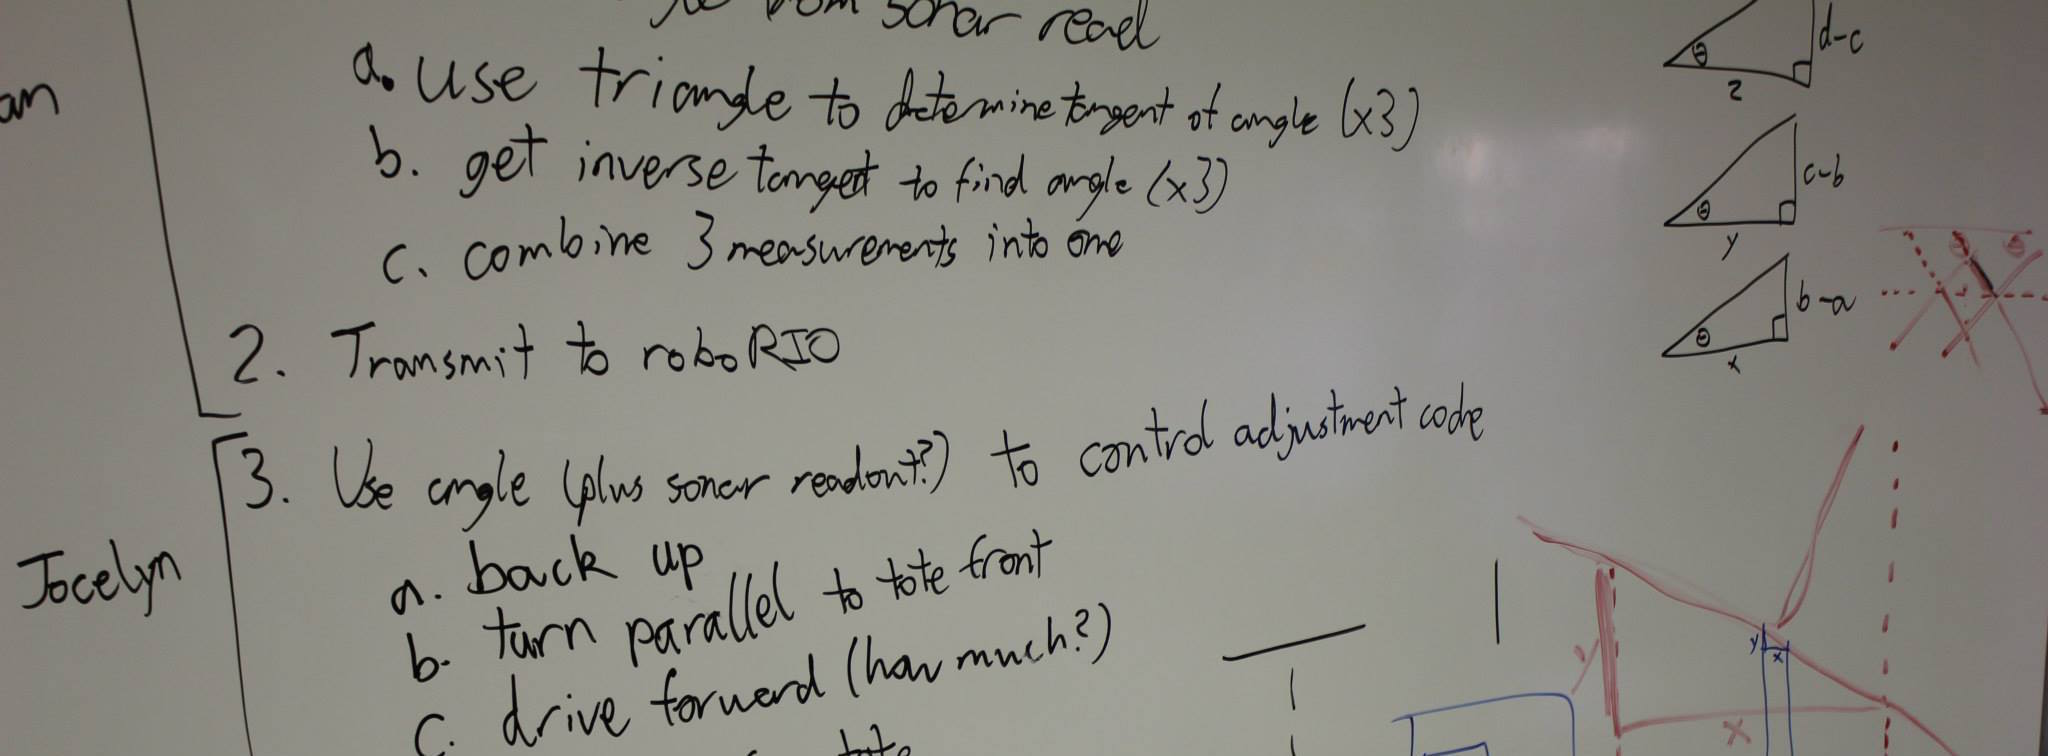 from sonar read
a. use triangle to determine tangent of angle (x3)
b. get inverse tangent to find angle (x3)
c. combine 3 measurements into one
2. Transmit to roboRIO
3. Use angle (plus sonar readout?) to control adjustment code
a. back up
b. turn parallel to tote front
c. drive forward (how much?)
tote
an
Jocelyn
θ
d-c
z
θ
c-b
y
θ
b-a
x
θ
θ
y
x
x